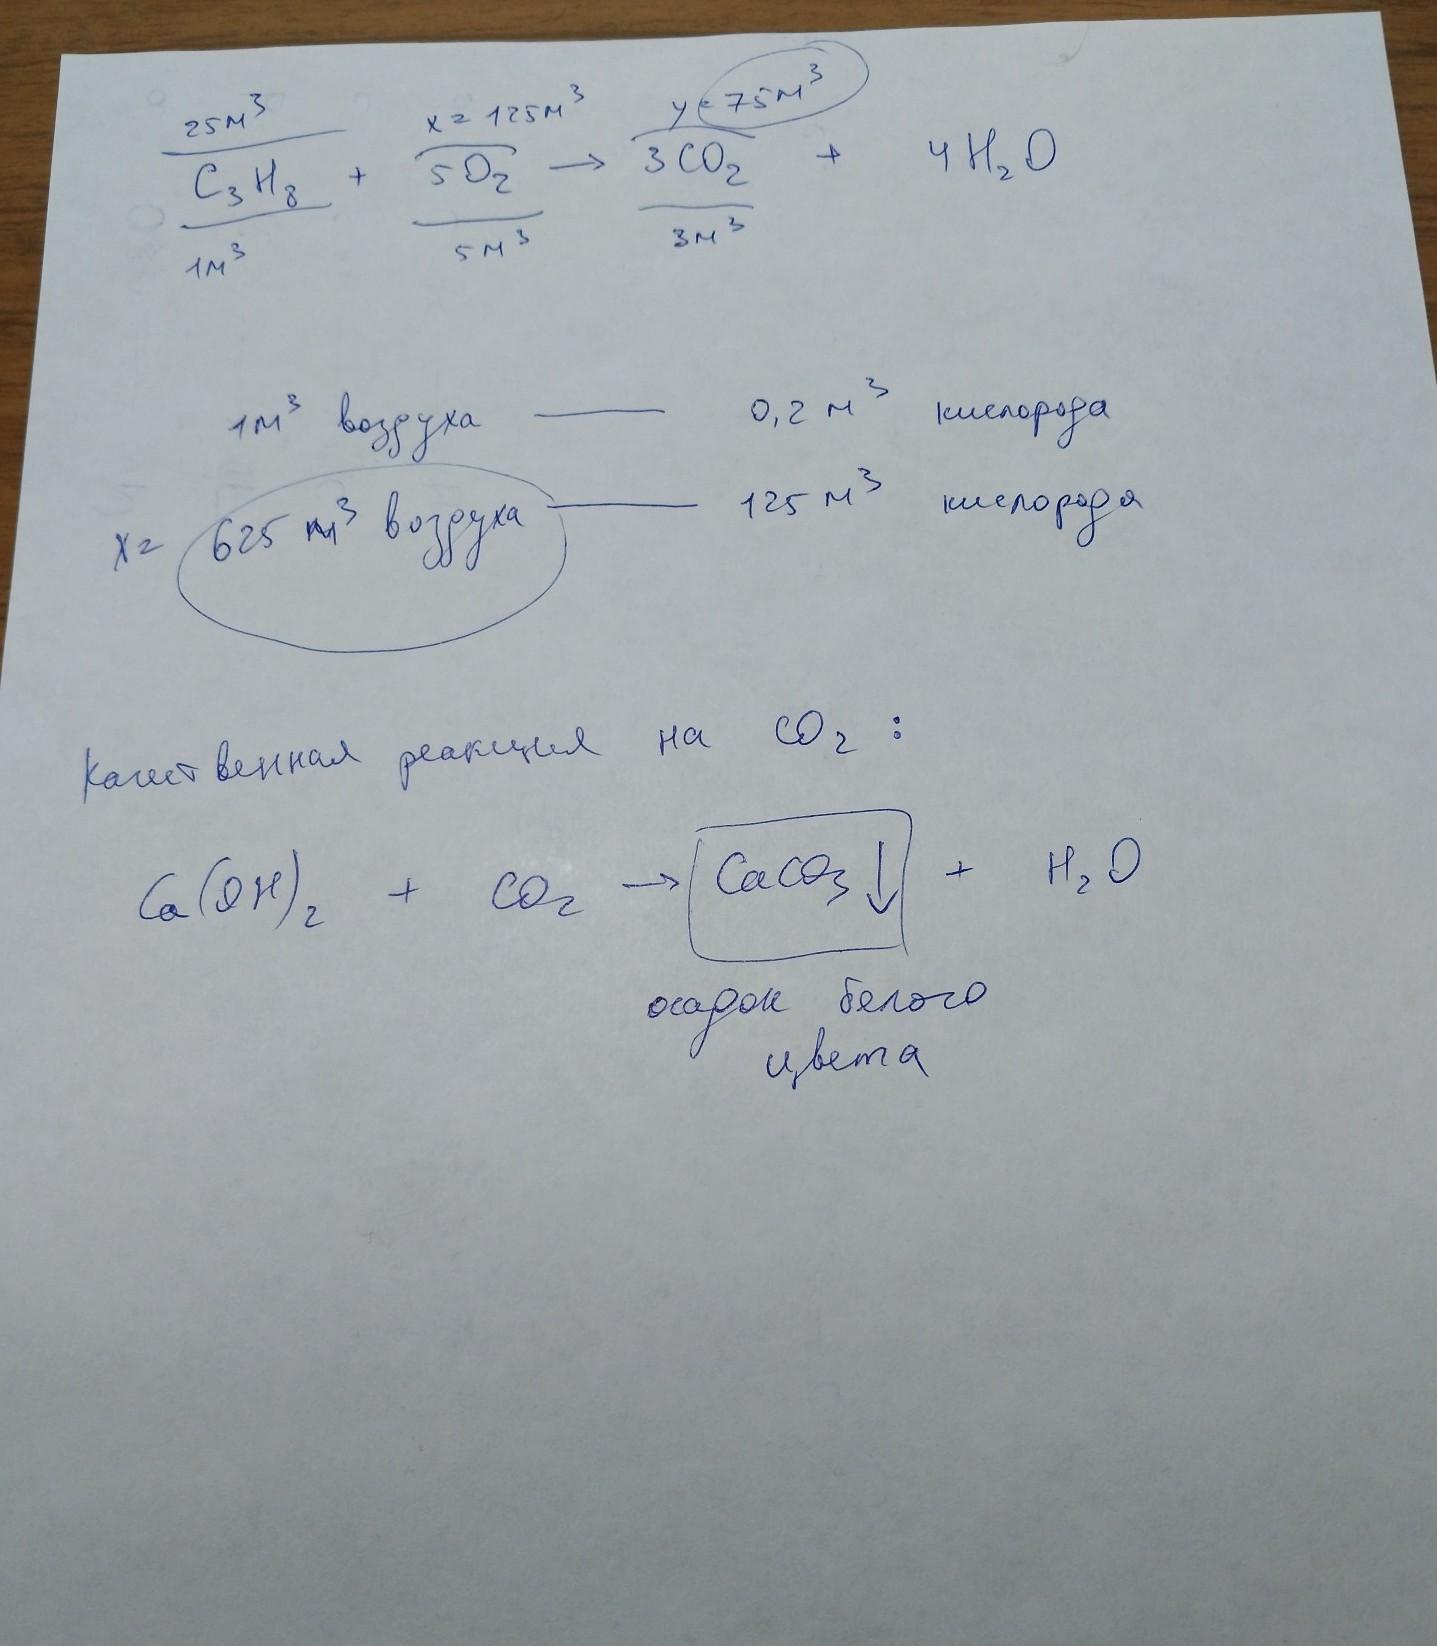 25м³ x = 125м³ y = 75м³
C₃H₈ + 5O₂ → 3CO₂ + 4H₂O
1м³ 5м³ 3м³
1м³ воздуха — 0,2 м³ кислорода
x = 625 м³ воздуха — 125 м³ кислорода
Качественная реакция на CO₂ :
Ca(OH)₂ + CO₂ → CaCO₃↓ + H₂O
осадок белого
цвета